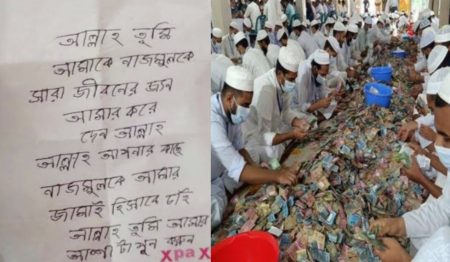 আল্লাহ তুমি
আমাকে নাজমুলকে
সারা জীবনের জন্য
আমার করে
দেন আল্লাহ
আল্লাহ আপনার কাছে
নাজমুলকে আমার
জামাই হিসাবে চাই
আল্লাহ তুমি আমার
আশা টা পুরন করুন
xpax